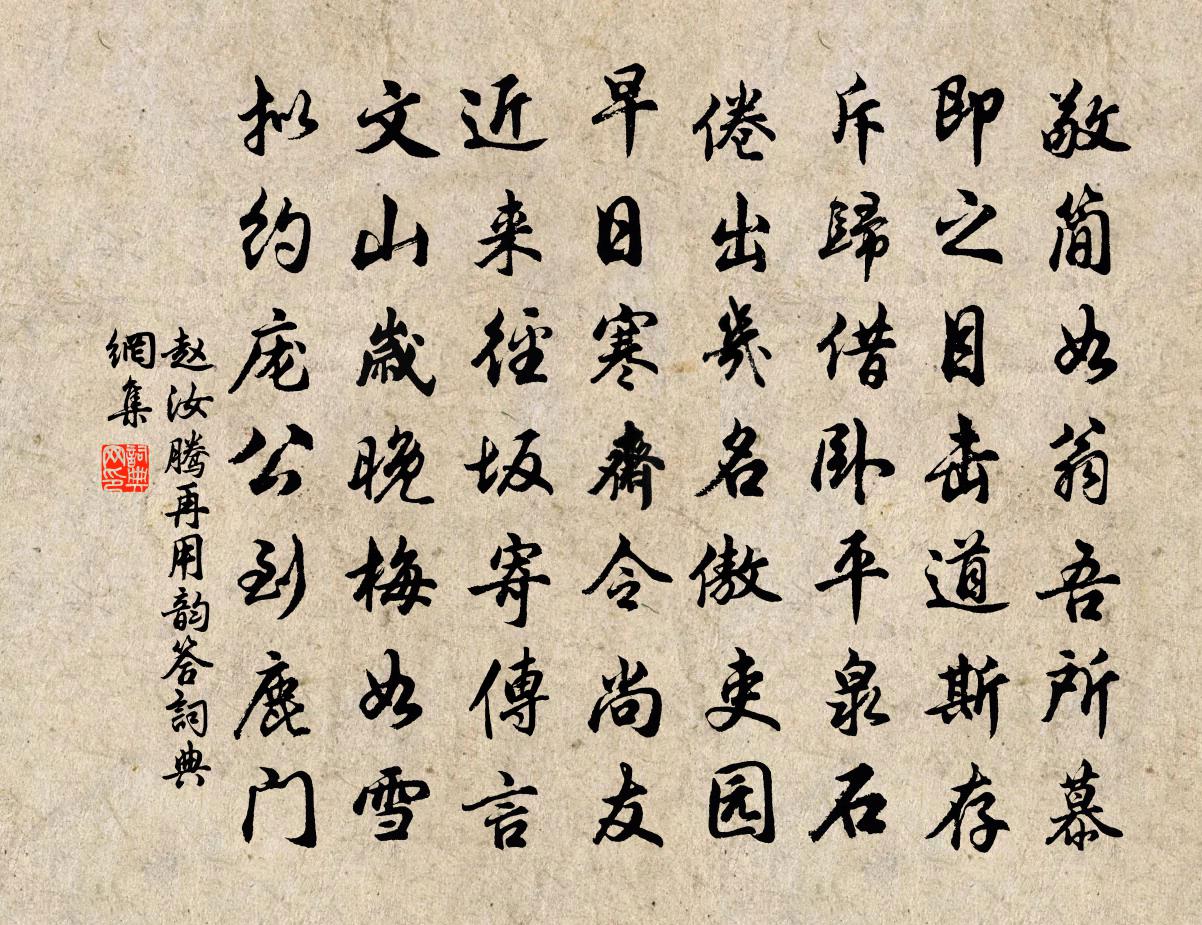 敬简如翁吾所慕
即之目击道斯存
斥歸借卧平泉石
倦出幾名傲吏园
早日寒齋令尚友
近来徑坂寄傳言
文山歲晚梅如雪
拟约庞公到鹿门
赵汝腾再用韵答詞典
網集
詞典
网印